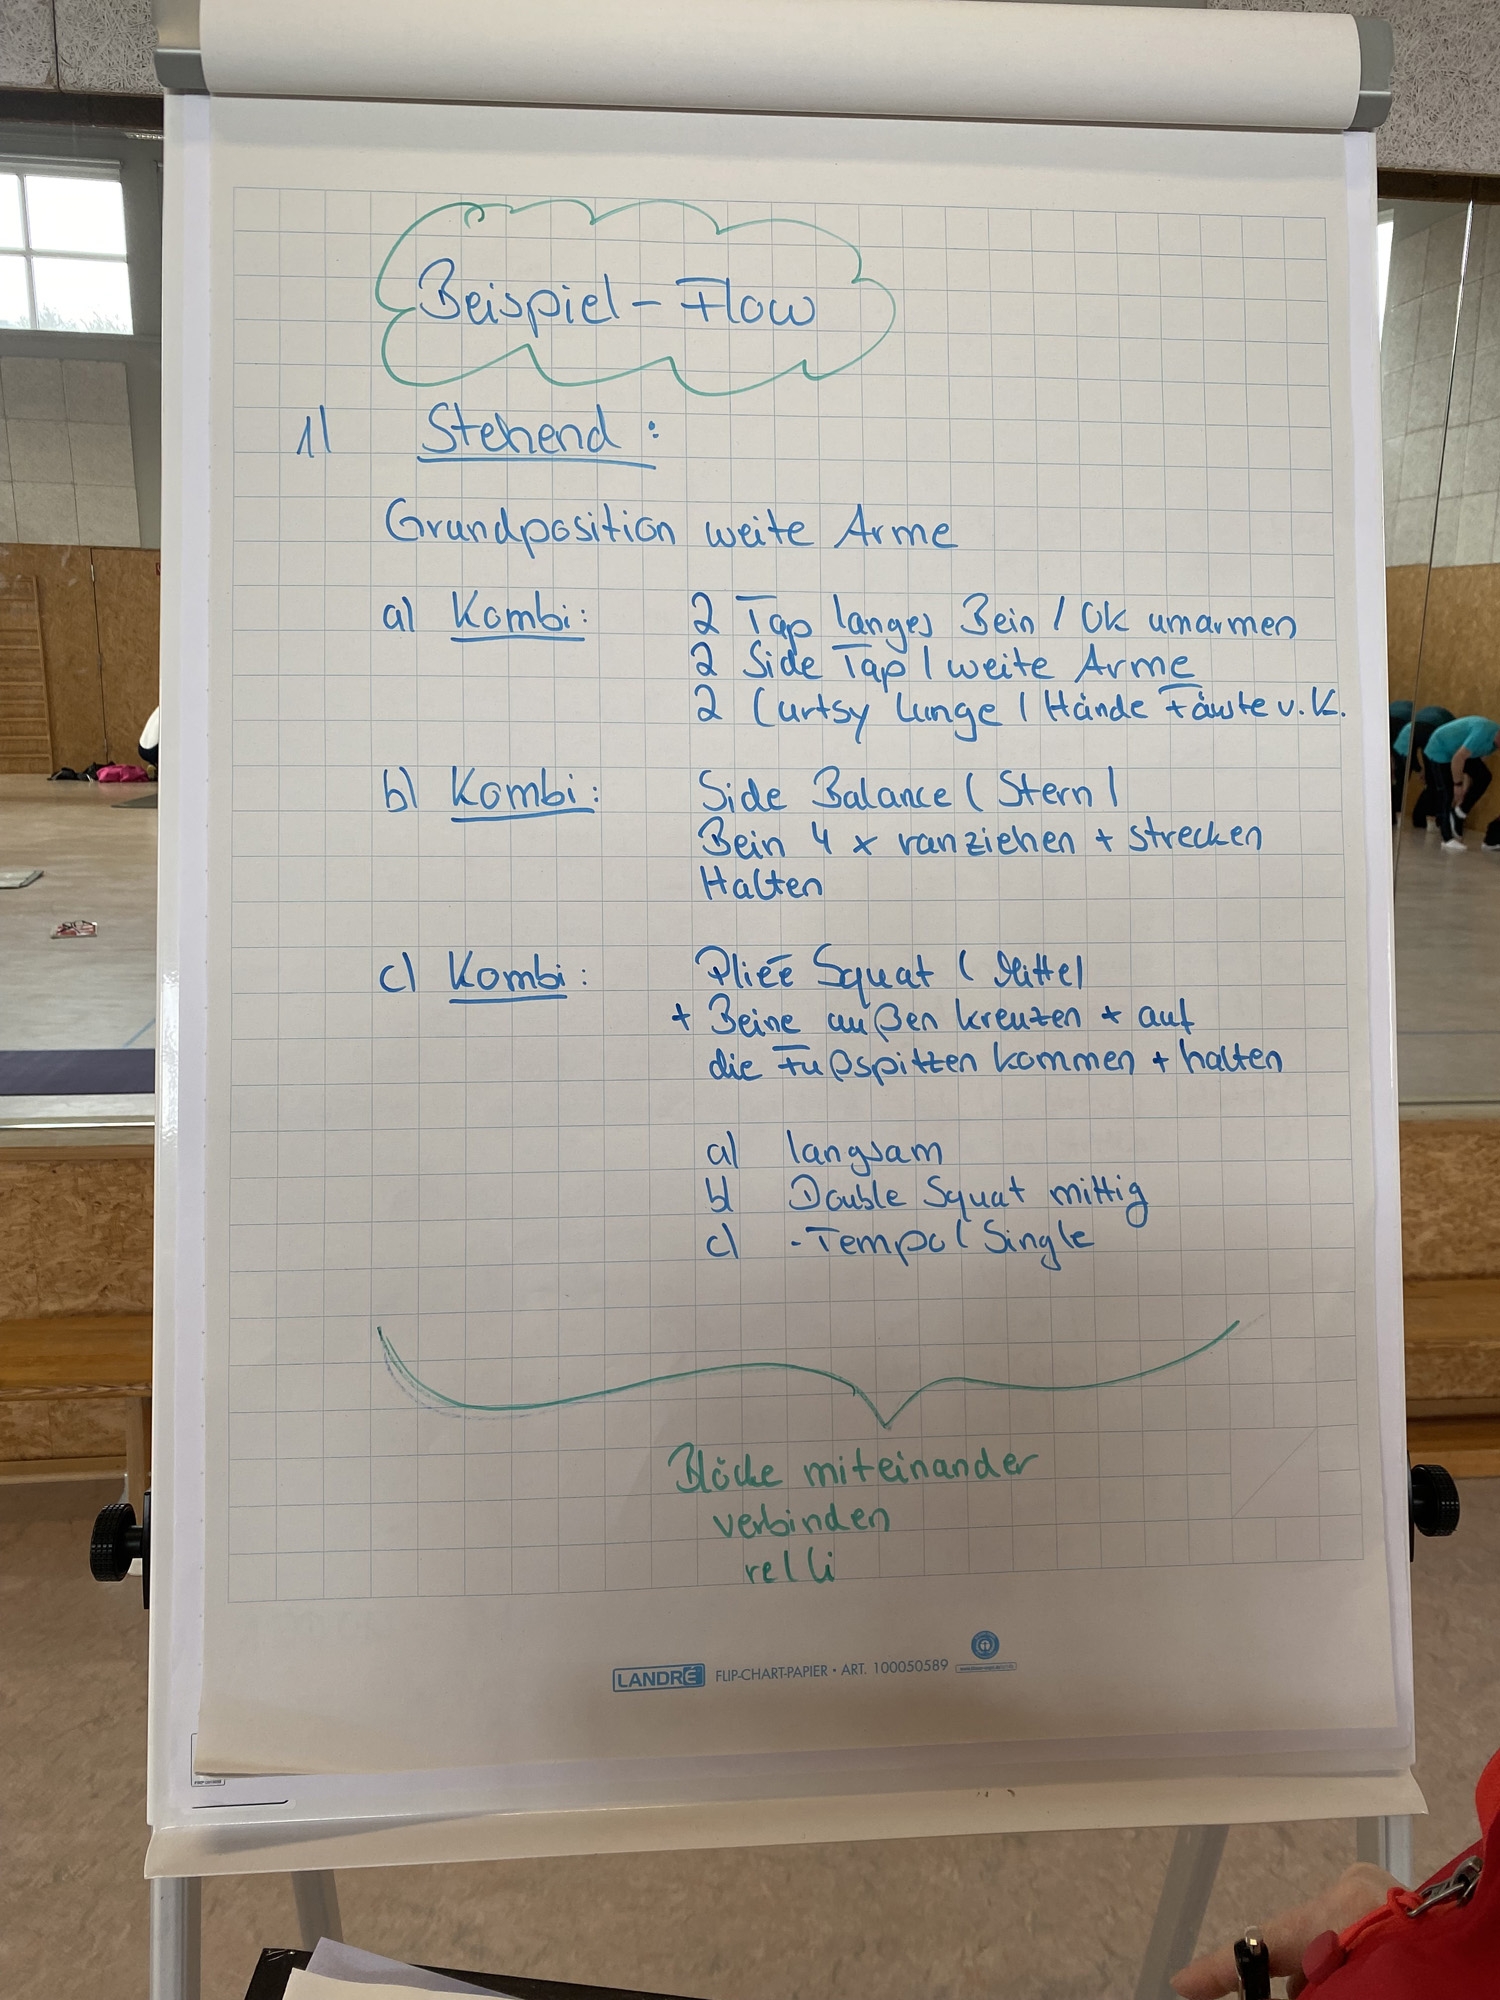 Beispiel - Flow
1) Stehend:
Grundposition weite Arme
a) Kombi: 2 Tap langes Bein / OK umarmen
2 Side Tap / weite Arme
2 Curtsy Lunge / Hände Fäuste v. K.
b) Kombi: Side Balance (Stern)
Bein 4 x ranziehen + strecken
Halten
c) Kombi: Plieé Squat (Mitte)
+ Beine außen kreuzen + auf
die Fußspitzen kommen + halten
a) langsam
b) Double Squat mittig
c) -Tempo (Single
Blöcke miteinander
verbinden
re/li
LANDRÉ FLIP-CHART-PAPIER • ART. 100050589